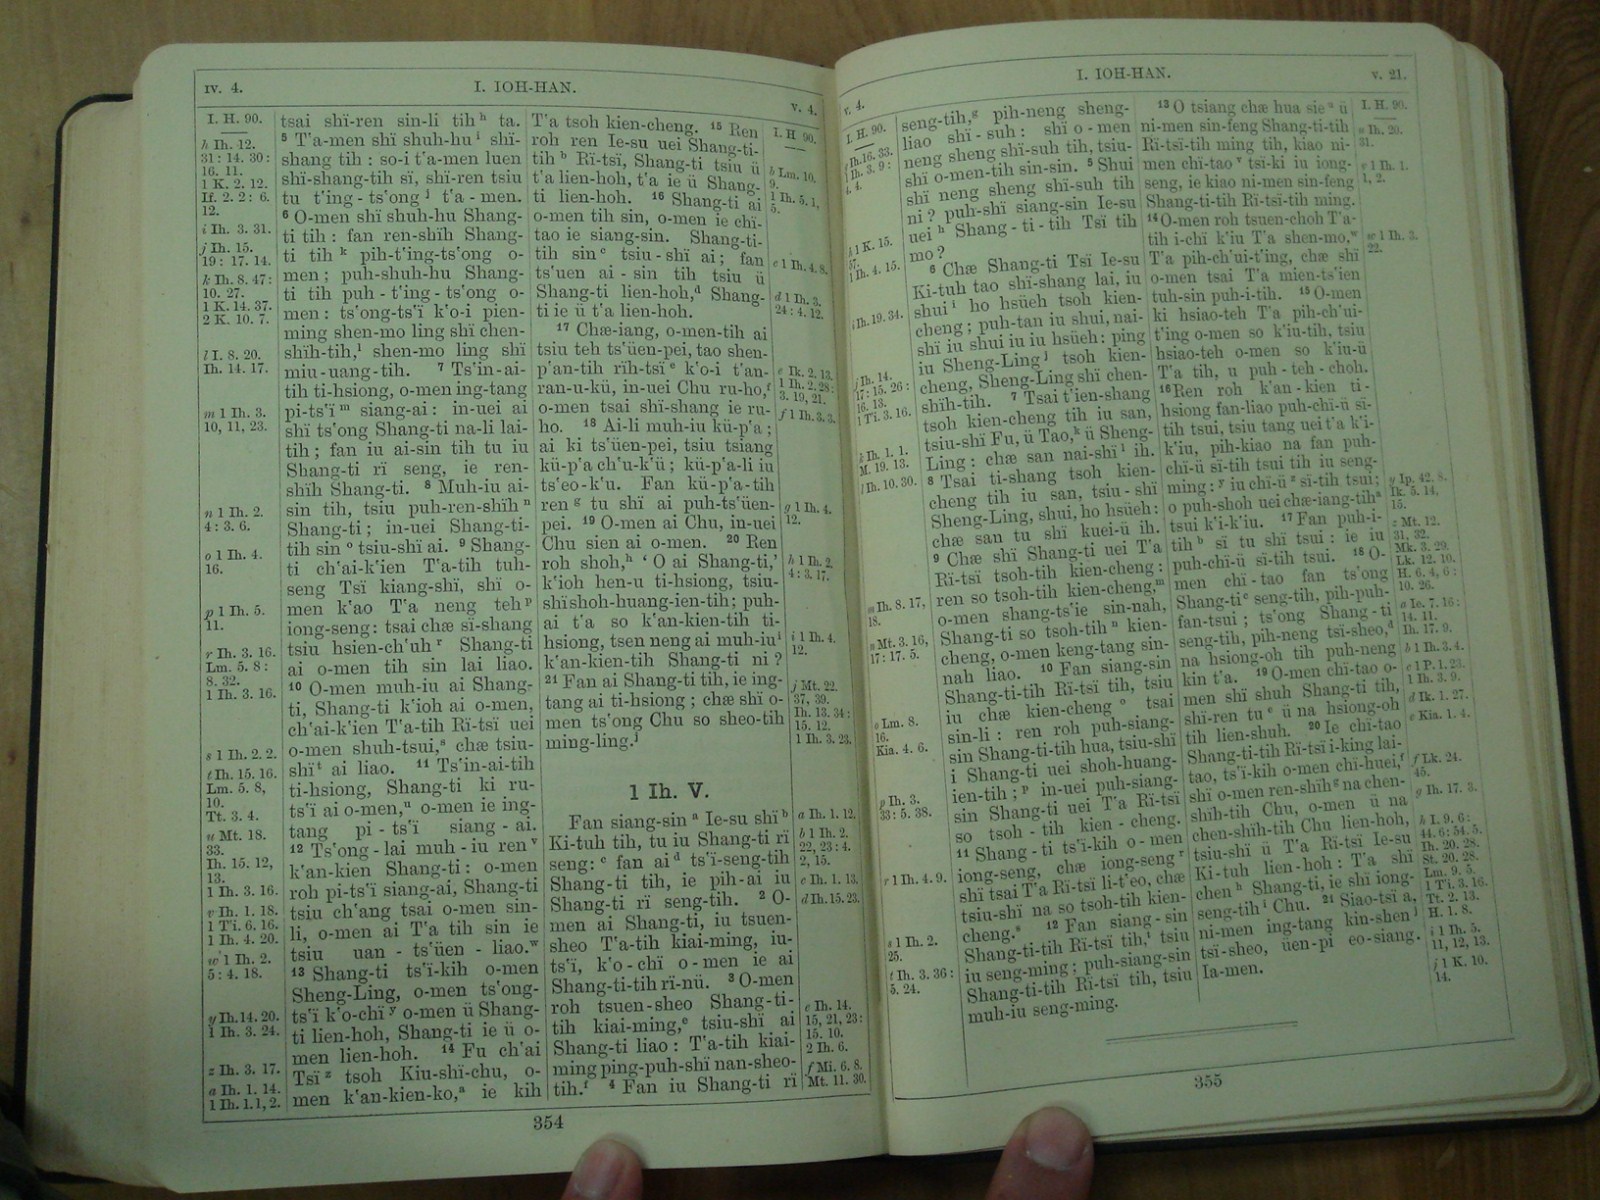 IV. 4.
I. IOH-HAN.
V. 4.
I. H. 90.
h Ih. 12.
31: 14. 30:
16. 11.
1 K. 2. 12.
If. 2. 2: 6.
12.
i Ih. 3. 31.
j Ih. 15.
19: 17. 14.
k Ih. 8. 47:
10. 27.
1 K. 14. 37.
2 K. 10. 7.
l I. 8. 20.
Ih. 14. 17.
m 1 Ih. 3.
10, 11, 23.
n 1 Ih. 2.
4: 3. 6.
o 1 Ih. 4.
16.
p 1 Ih. 5.
11.
r Ih. 3. 16.
Lm. 5. 8:
8. 32.
1 Ih. 3. 16.
s 1 Ih. 2. 2.
t Ih. 15. 16.
Lm. 5. 8,
10.
Tt. 3. 4.
u Mt. 18.
33.
Ih. 15. 12,
13.
1 Ih. 3. 16.
v Ih. 1. 18.
1 Ti. 6. 16.
1 Ih. 4. 20.
w 1 Ih. 2.
5: 4. 18.
y Ih. 14. 20.
1 Ih. 3. 24.
z Ih. 3. 17.
a Ih. 1. 14.
1 Ih. 1. 1, 2.
tsai shï-ren sin-li tih h ta.
5 T'a-men shï shuh-hu i shï-
shang tih : so-i t'a-men luen
shï-shang-tih sï, shï-ren tsiu
tu t'ing-ts'ong j t'a-men.
6 O-men shï shuh-hu Shang-
ti tih : fan ren-shïh Shang-
ti tih k pih-t'ing-ts'ong o-
men ; puh-shuh-hu Shang-
ti tih puh-t'ing-ts'ong o-
men : ts'ong-ts'ï k'o-i pien-
ming shen-mo ling shï chen-
shïh-tih, l shen-mo ling shï
miu-uang-tih. 7 Ts'in-ai-
tih ti-hsiong, o-men ing-tang
pi-ts'ï m siang-ai : in-uei ai
shï ts'ong Shang-ti na-li lai-
tih ; fan iu ai-sin tih tu iu
Shang-ti rï seng, ie ren-
shïh Shang-ti. 8 Muh-iu ai-
sin tih, tsiu puh-ren-shïh n
Shang-ti ; in-uei Shang-ti-
tih sin o tsiu-shï ai. 9 Shang-
ti ch'ai-k'ien T'a-tih tuh-
seng Tsï kiang-shï, shï o-
men k'ao T'a neng teh p
iong-seng: tsai chæ sï-shang
tsiu hsien-ch'uh r Shang-ti
ai o-men tih sin lai liao.
10 O-men muh-iu ai Shang-
ti, Shang-ti k'ioh ai o-men,
ch'ai-k'ien T'a-tih Rï-tsï uei
o-men shuh-tsui, s chæ tsiu-
shï t ai liao. 11 Ts'in-ai-tih
ti-hsiong, Shang-ti ki ru-
ts'ï ai o-men, u o-men ie ing-
tang pi-ts'ï siang-ai.
12 Ts'ong-lai muh-iu ren v
k'an-kien Shang-ti: o-men
roh pi-ts'ï siang-ai, Shang-ti
tsiu ch'ang tsai o-men sin-
li, o-men ai T'a tih sin ie
tsiu uan-ts'üen-liao. w
13 Shang-ti ts'ï-kih o-men
Sheng-Ling, o-men ts'ong-
ts'ï k'o-chï y o-men ü Shang-
ti lien-hoh, Shang-ti ie ü o-
men lien-hoh. 14 Fu ch'ai
Tsï z tsoh Kiu-shï-chu, o-
men k'an-kien-ko, a ie kih
T'a tsoh kien-cheng. 15 Ren
roh ren Ie-su uei Shang-ti-
tih b Rï-tsï, Shang-ti tsiu ü
t'a lien-hoh, t'a ie ü Shang-
ti lien-hoh. 16 Shang-ti ai
o-men tih sin, o-men ie chï-
tao ie siang-sin. Shang-ti-
tih sin c tsiu-shï ai ; fan
ts'uen ai-sin tih tsiu ü
Shang-ti lien-hoh, d Shang-
ti ie ü t'a lien-hoh.
17 Chæ-iang, o-men-tih ai
tsiu teh ts'üen-pei, tao shen-
p'an-tih rïh-tsï e k'o-i t'an-
ran-u-kü, in-uei Chu ru-ho, f
o-men tsai shï-shang ie ru-
ho. 18 Ai-li muh-iu kü-p'a ;
ai ki ts'üen-pei, tsiu tsiang
kü-p'a ch'u-k'ü ; kü-p'a-li iu
ts'eo-k'u. Fan kü-p'a-tih
ren g tu shï ai puh-ts'üen-
pei. 19 O-men ai Chu, in-uei
Chu sien ai o-men. 20 Ren
roh shoh, h ' O ai Shang-ti,'
k'ioh hen-u ti-hsiong, tsiu-
shï shoh-huang-ien-tih ; puh-
ai t'a so k'an-kien-tih ti-
hsiong, tsen neng ai muh-iu i
k'an-kien-tih Shang-ti ni ?
21 Fan ai Shang-ti tih, ie ing-
tang ai ti-hsiong ; chæ shï o-
men ts'ong Chu so sheo-tih
ming-ling. j
1 Ih. V.
Fan siang-sin a Ie-su shï b
Ki-tuh tih, tu iu Shang-ti rï
seng: c fan ai d ts'ï-seng-tih
Shang-ti tih, ie pih-ai iu
Shang-ti rï seng-tih. 2 O-
men ai Shang-ti, iu tsuen-
sheo T'a-tih kiai-ming, iu-
ts'ï, k'o-chï o-men ie ai
Shang-ti-tih rï-nü. 3 O-men
roh tsuen-sheo Shang-ti-
tih kiai-ming, e tsiu-shï ai
Shang-ti liao : T'a-tih kiai-
ming ping-puh-shï nan-sheo-
tih. f 4 Fan iu Shang-ti rï
I. H. 90.
b Lm. 10.
9.
1 Ih. 5. 1,
5.
c 1 Ih. 4. 8.
d 1 Ih. 3.
24: 4. 12.
e Ik. 2. 13.
1 Ih. 2. 28:
3. 19, 21.
f 1 Ih. 3. 3.
g 1 Ih. 4.
12.
h 1 Ih. 2.
4: 3. 17.
i 1 Ih. 4.
12.
j Mt. 22.
37, 39.
Ih. 13. 34:
15. 12.
1 Ih. 3. 23.
a Ih. 1. 12.
b 1 Ih. 2.
22, 23: 4.
2, 15.
c Ih. 1. 13.
d Ih. 15. 23.
e Ih. 14.
15, 21, 23:
15. 10.
2 Ih. 6.
f Mi. 6. 8.
Mt. 11. 30.
354
v. 4.
I. IOH-HAN.
v. 21.
I. H. 90.
g Ih. 16. 33.
1 Ih. 3. 9:
4. 4.
h 1 K. 15.
57.
1 Ih. 4. 15.
i Ih. 19. 34.
j Ih. 14.
17: 15. 26:
16. 13.
1 Ti. 3. 16.
k Ih. 1. 1.
M. 19. 13.
l Ih. 10. 30.
m Ih. 8. 17,
18.
n Mt. 3. 16,
17: 17. 5.
o Lm. 8.
16.
Kia. 4. 6.
p Ih. 3.
33: 5. 38.
r 1 Ih. 4. 9.
s 1 Ih. 2.
25.
t Ih. 3. 36:
5. 24.
seng-tih, g pih-neng sheng-
liao shï-suh : shï o-men
neng sheng shï-suh tih, tsiu-
shï o-men-tih sin-sin. 5 Shui
shï neng sheng shï-suh tih
ni ? puh-shï siang-sin Ie-su
uei h Shang-ti-tih Tsï tih
mo ?
6 Chæ Shang-ti Tsï Ie-su
Ki-tuh tao shï-shang lai, iu
shui i ho hsüeh tsoh kien-
cheng ; puh-tan iu shui, nai-
shï iu shui iu iu hsüeh : ping
iu Sheng-Ling j tsoh kien-
cheng, Sheng-Ling shï chen-
shïh-tih. 7 Tsai t'ien-shang
tsoh kien-cheng tih iu san,
tsiu-shï Fu, ü Tao, k ü Sheng-
Ling : chæ san nai-shï l ih.
8 Tsai ti-shang tsoh kien-
cheng tih iu san, tsiu-shï
Sheng-Ling, shui, ho hsüeh :
chæ san tu shï kuei-ü ih.
9 Chæ shï Shang-ti uei T'a
Rï-tsï tsoh-tih kien-cheng :
ren so tsoh-tih kien-cheng, m
o-men shang-ts'ie sin-nah,
Shang-ti so tsoh-tih n kien-
cheng, o-men keng-tang sin-
nah liao. 10 Fan siang-sin
Shang-ti-tih Rï-tsï tih, tsiu
iu chæ kien-cheng o tsai
sin-li : ren roh puh-siang-
sin Shang-ti-tih hua, tsiu-shï
i Shang-ti uei shoh-huang-
ien-tih ; p in-uei puh-siang-
sin Shang-ti uei T'a Rï-tsï
so tsoh-tih kien-cheng.
11 Shang-ti ts'ï-kih o-men
iong-seng, chæ iong-seng r
shï tsai T'a Rï-tsï li-t'eo, chæ
tsiu-shï na so tsoh-tih kien-
cheng. s 12 Fan siang-sin
Shang-ti-tih Rï-tsï tih, t tsiu
iu seng-ming ; puh-siang-sin
Shang-ti-tih Rï-tsï tih, tsiu
muh-iu seng-ming.
13 O tsiang chæ hua sie u ü
ni-men sin-feng Shang-ti-tih
Rï-tsï-tih ming tih, kiao ni-
men chï-tao v tsï-ki iu iong-
seng, ie kiao ni-men sin-feng
Shang-ti-tih Rï-tsï-tih ming.
14 O-men roh tsuen-choh T'a-
tih i-chï k'iu T'a shen-mo, w
T'a pih-ch'ui-t'ing, chæ shï
o-men tsai T'a mien-ts'ien
tuh-sin puh-i-tih. 15 O-men
ki hsiao-teh T'a pih-ch'ui-
t'ing o-men so k'iu-tih, tsiu
hsiao-teh o-men so k'iu-ü
T'a tih, u puh-teh-choh.
16 Ren roh k'an-kien ti-
hsiong fan-liao puh-chï-ü sï-
tih tsui, tsiu tang uei t'a k'i-
k'iu, pih-kiao na fan puh-
chï-ü sï-tih tsui tih iu seng-
ming : y iu chï-ü z sï-tih tsui ;
o puh-shoh uei chæ-iang-tih a
tsui k'i-k'iu. 17 Fan puh-i-
tih b sï tu shï tsui : ie iu
puh-chï-ü sï-tih tsui. 18 O-
men chï-tao fan ts'ong
Shang-ti c seng-tih, pih-puh-
fan-tsui ; ts'ong Shang-ti
seng-tih, pih-neng tsï-sheo, d
na hsiong-oh tih puh-neng
kin t'a. 19 O-men chï-tao o-
men shï shuh Shang-ti tih,
shï-ren tu e ü na hsiong-oh
tih lien-shuh. 20 Ie chï-tao
Shang-ti-tih Rï-tsï i-king lai-
tao, ts'ï-kih o-men chï-huei, f
shï o-men ren-shïh g na chen-
shïh-tih Chu, o-men ü na
chen-shïh-tih Chu lien-hoh,
tsiu-shï ü T'a Rï-tsï Ie-su
Ki-tuh lien-hoh : T'a shï
chen h Shang-ti, ie shï iong-
seng-tih i Chu. 21 Siao-tsï a,
ni-men ing-tang kin-shen j
tsï-sheo, üen-pi eo-siang.
Ia-men.
I. H. 90.
u Ih. 20.
31.
v 1 Ih. 1.
1, 2.
w 1 Ih. 3.
22.
y Ip. 42. 8.
Ik. 5. 14,
15.
z Mt. 12.
31, 32.
Mk. 3. 29.
Lk. 12. 10.
H. 6. 4, 6:
10. 26.
a Ie. 7. 16:
14. 11.
Ih. 17. 9.
b 1 Ih. 3. 4.
c 1 P. 1. 23.
1 Ih. 3. 9.
d Ik. 1. 27.
e Kia. 1. 4.
f Lk. 24.
45.
g Ih. 17. 3.
h I. 9. 6:
44. 6: 54. 5.
Ih. 20. 28.
St. 20. 28.
Lm. 9. 5.
1 Ti. 3. 16.
Tt. 2. 13.
H. 1. 8.
i 1 Ih. 5.
11, 12, 13.
j 1 K. 10.
14.
355